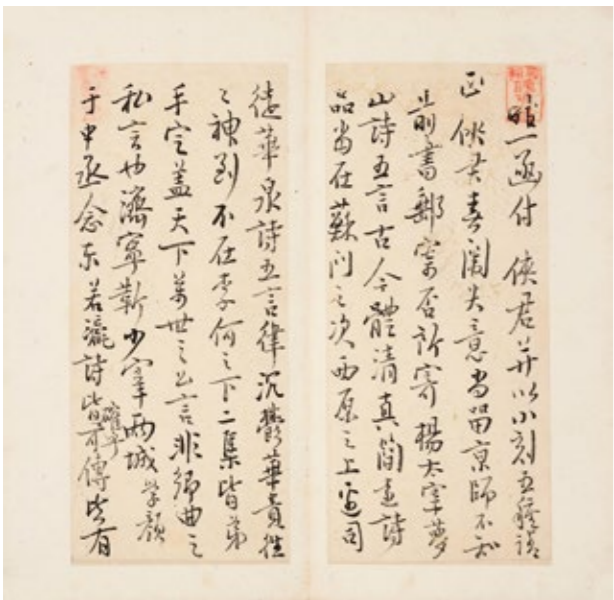 昨一函付 俠君并以小刻五種請
正 俠君春闈失意當留京師不知
前書郵寄否所寄楊太宰夢
山詩五言古今體清真簡遠詩
品當在蘇門之次西原之上邊司
徒華泉詩五言律沉鬱華貴往
〻神到不在李何之下二集皆弟
手定蓋天下萬世之公言非鄉曲之
私言也濟寧靳少宰兩城學顏
于中丞念東若瀛詩皆確乎可傳皆有